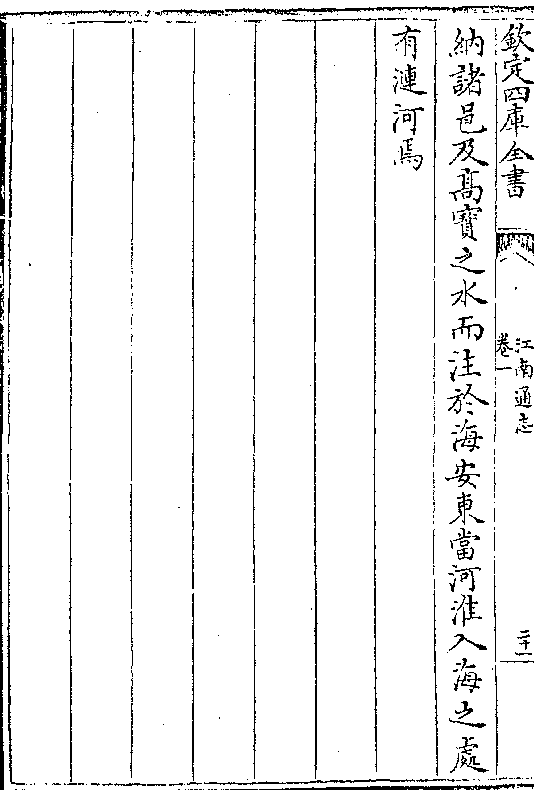 欽定四庫全書
江南通志
卷一
二十一
納諸邑及髙寳之水而注於海安東當河淮入海之處
有漣河焉